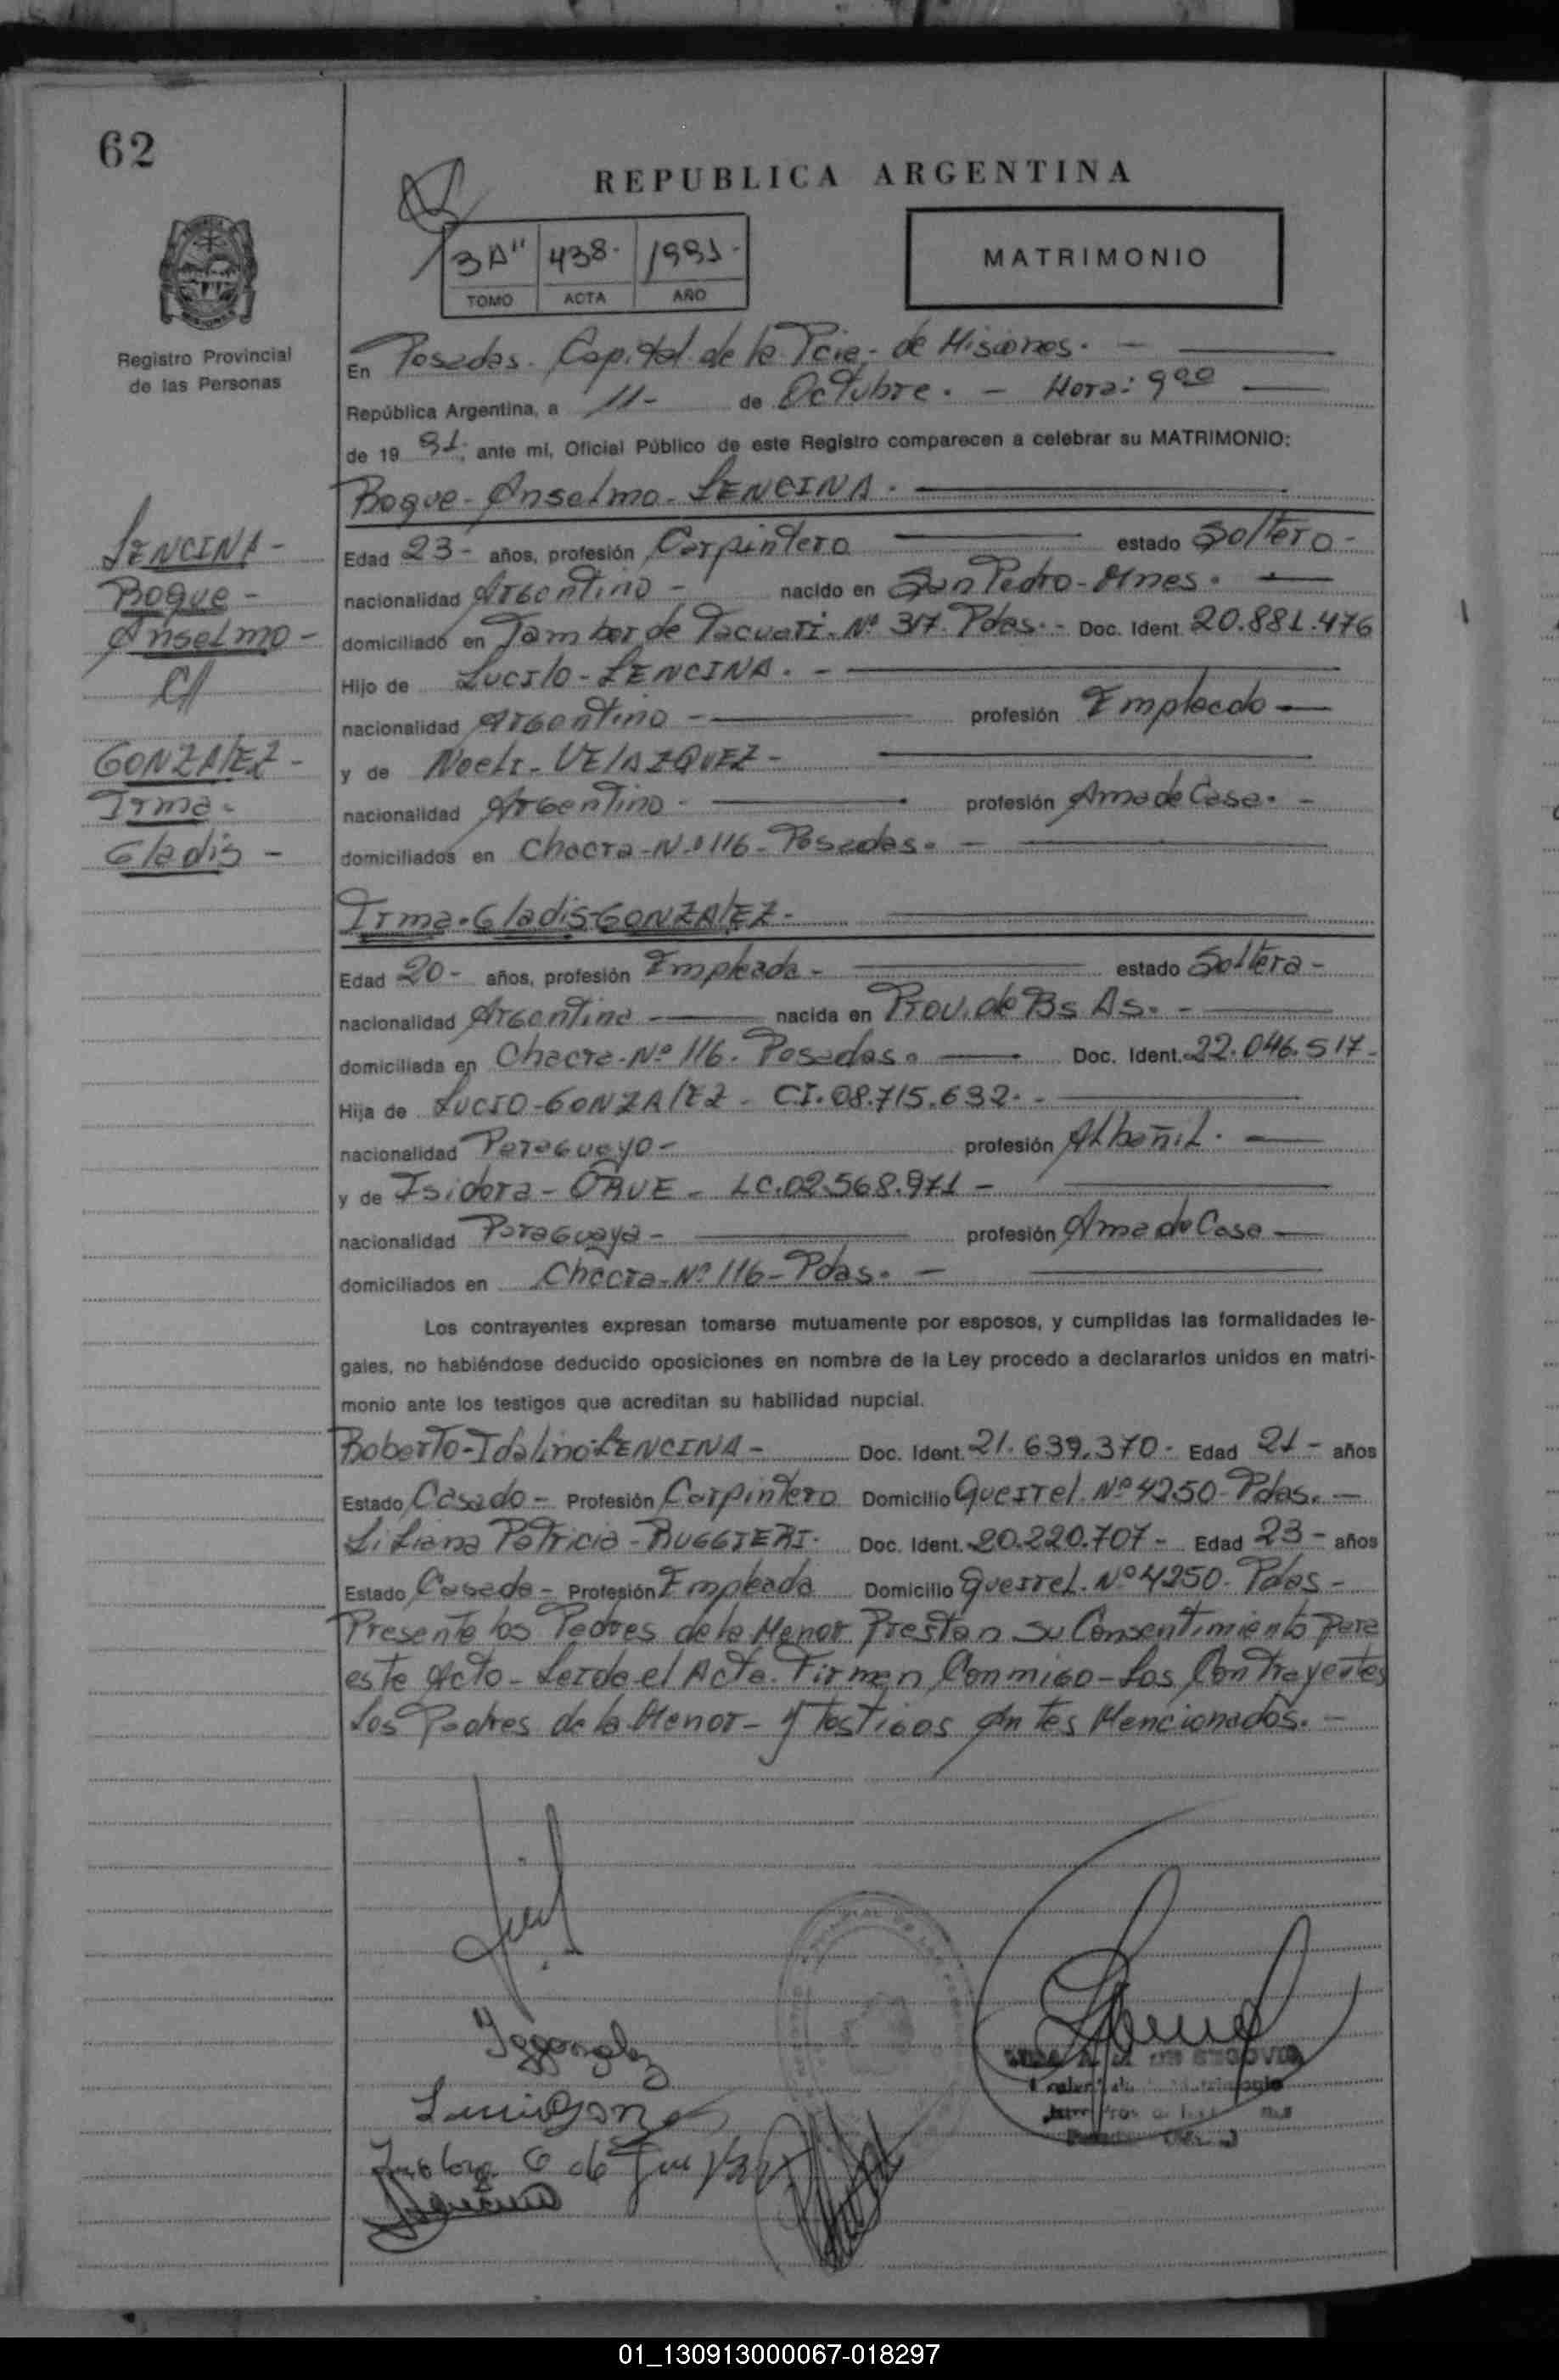 62
REPUBLICA ARGENTINA
3A" 438. 1991.
TOMO ACTA AÑO
MATRIMONIO
Registro Provincial
de las Personas
En Posadas. Capital de la Pcia. de Misiones. -
República Argentina, a 11- de Octubre. - Hora: 9 00
de 19 91. ante mi, Oficial Público de este Registro comparecen a celebrar su MATRIMONIO:
Roque - Anselmo - LENCINA.
LENCINA -
Roque -
Anselmo -
C//
GONZALEZ -
Irma -
Gladis -
Edad 23 - años, profesión Carpintero estado Soltero -
nacionalidad Argentino - nacido en San Pedro - Mnes. -
domiciliado en Tambor de Tacuari. Nº 317. Pdas. - Doc. Ident. 20.881.476
Hijo de Lucilo - LENCINA. -
nacionalidad Argentino - profesión Empleado -
y de Noeli - VELAZQUEZ -
nacionalidad Argentino - profesión Ama de Casa. -
domiciliados en Chacra - Nº 116 - Posadas. -
Irma - Gladis - GONZALEZ -
Edad 20 - años, profesión Empleada - estado Soltera -
nacionalidad Argentina - nacida en Prov. de Bs As. -
domiciliada en Chacra - Nº 116 - Posadas. Doc. Ident. 22.046.517 -
Hija de Lucio - GONZALEZ - CI. 08.715.632. -
nacionalidad Paraguayo - profesión Albañil. -
y de Isidora - ORUE - LC. 02.568.971 -
nacionalidad Paraguaya - profesión Ama de Casa -
domiciliados en Chacra - Nº 116 - Pdas. -
Los contrayentes expresan tomarse mutuamente por esposos, y cumplidas las formalidades le-
gales, no habiéndose deducido oposiciones en nombre de la Ley procedo a declararlos unidos en matri-
monio ante los testigos que acreditan su habilidad nupcial.
Roberto - Idalino LENCINA - Doc. Ident. 21.639.370 - Edad 21 - años
Estado Casado - Profesión Carpintero Domicilio Guerrel. Nº 4250 - Pdas. -
Liliana Patricia - RUGGIERI. Doc. Ident. 20.220.707 - Edad 23 - años
Estado Casada - Profesión Empleada Domicilio Guerrel. Nº 4250 - Pdas -
Presente los Padres de la Menor Prestan su Consentimiento para
este Acto - Leida el Acta. Firman Conmigo - Los Contrayentes
Los Padres de la Menor - y testigos Antes Mencionados. -
01_130913000067-018297